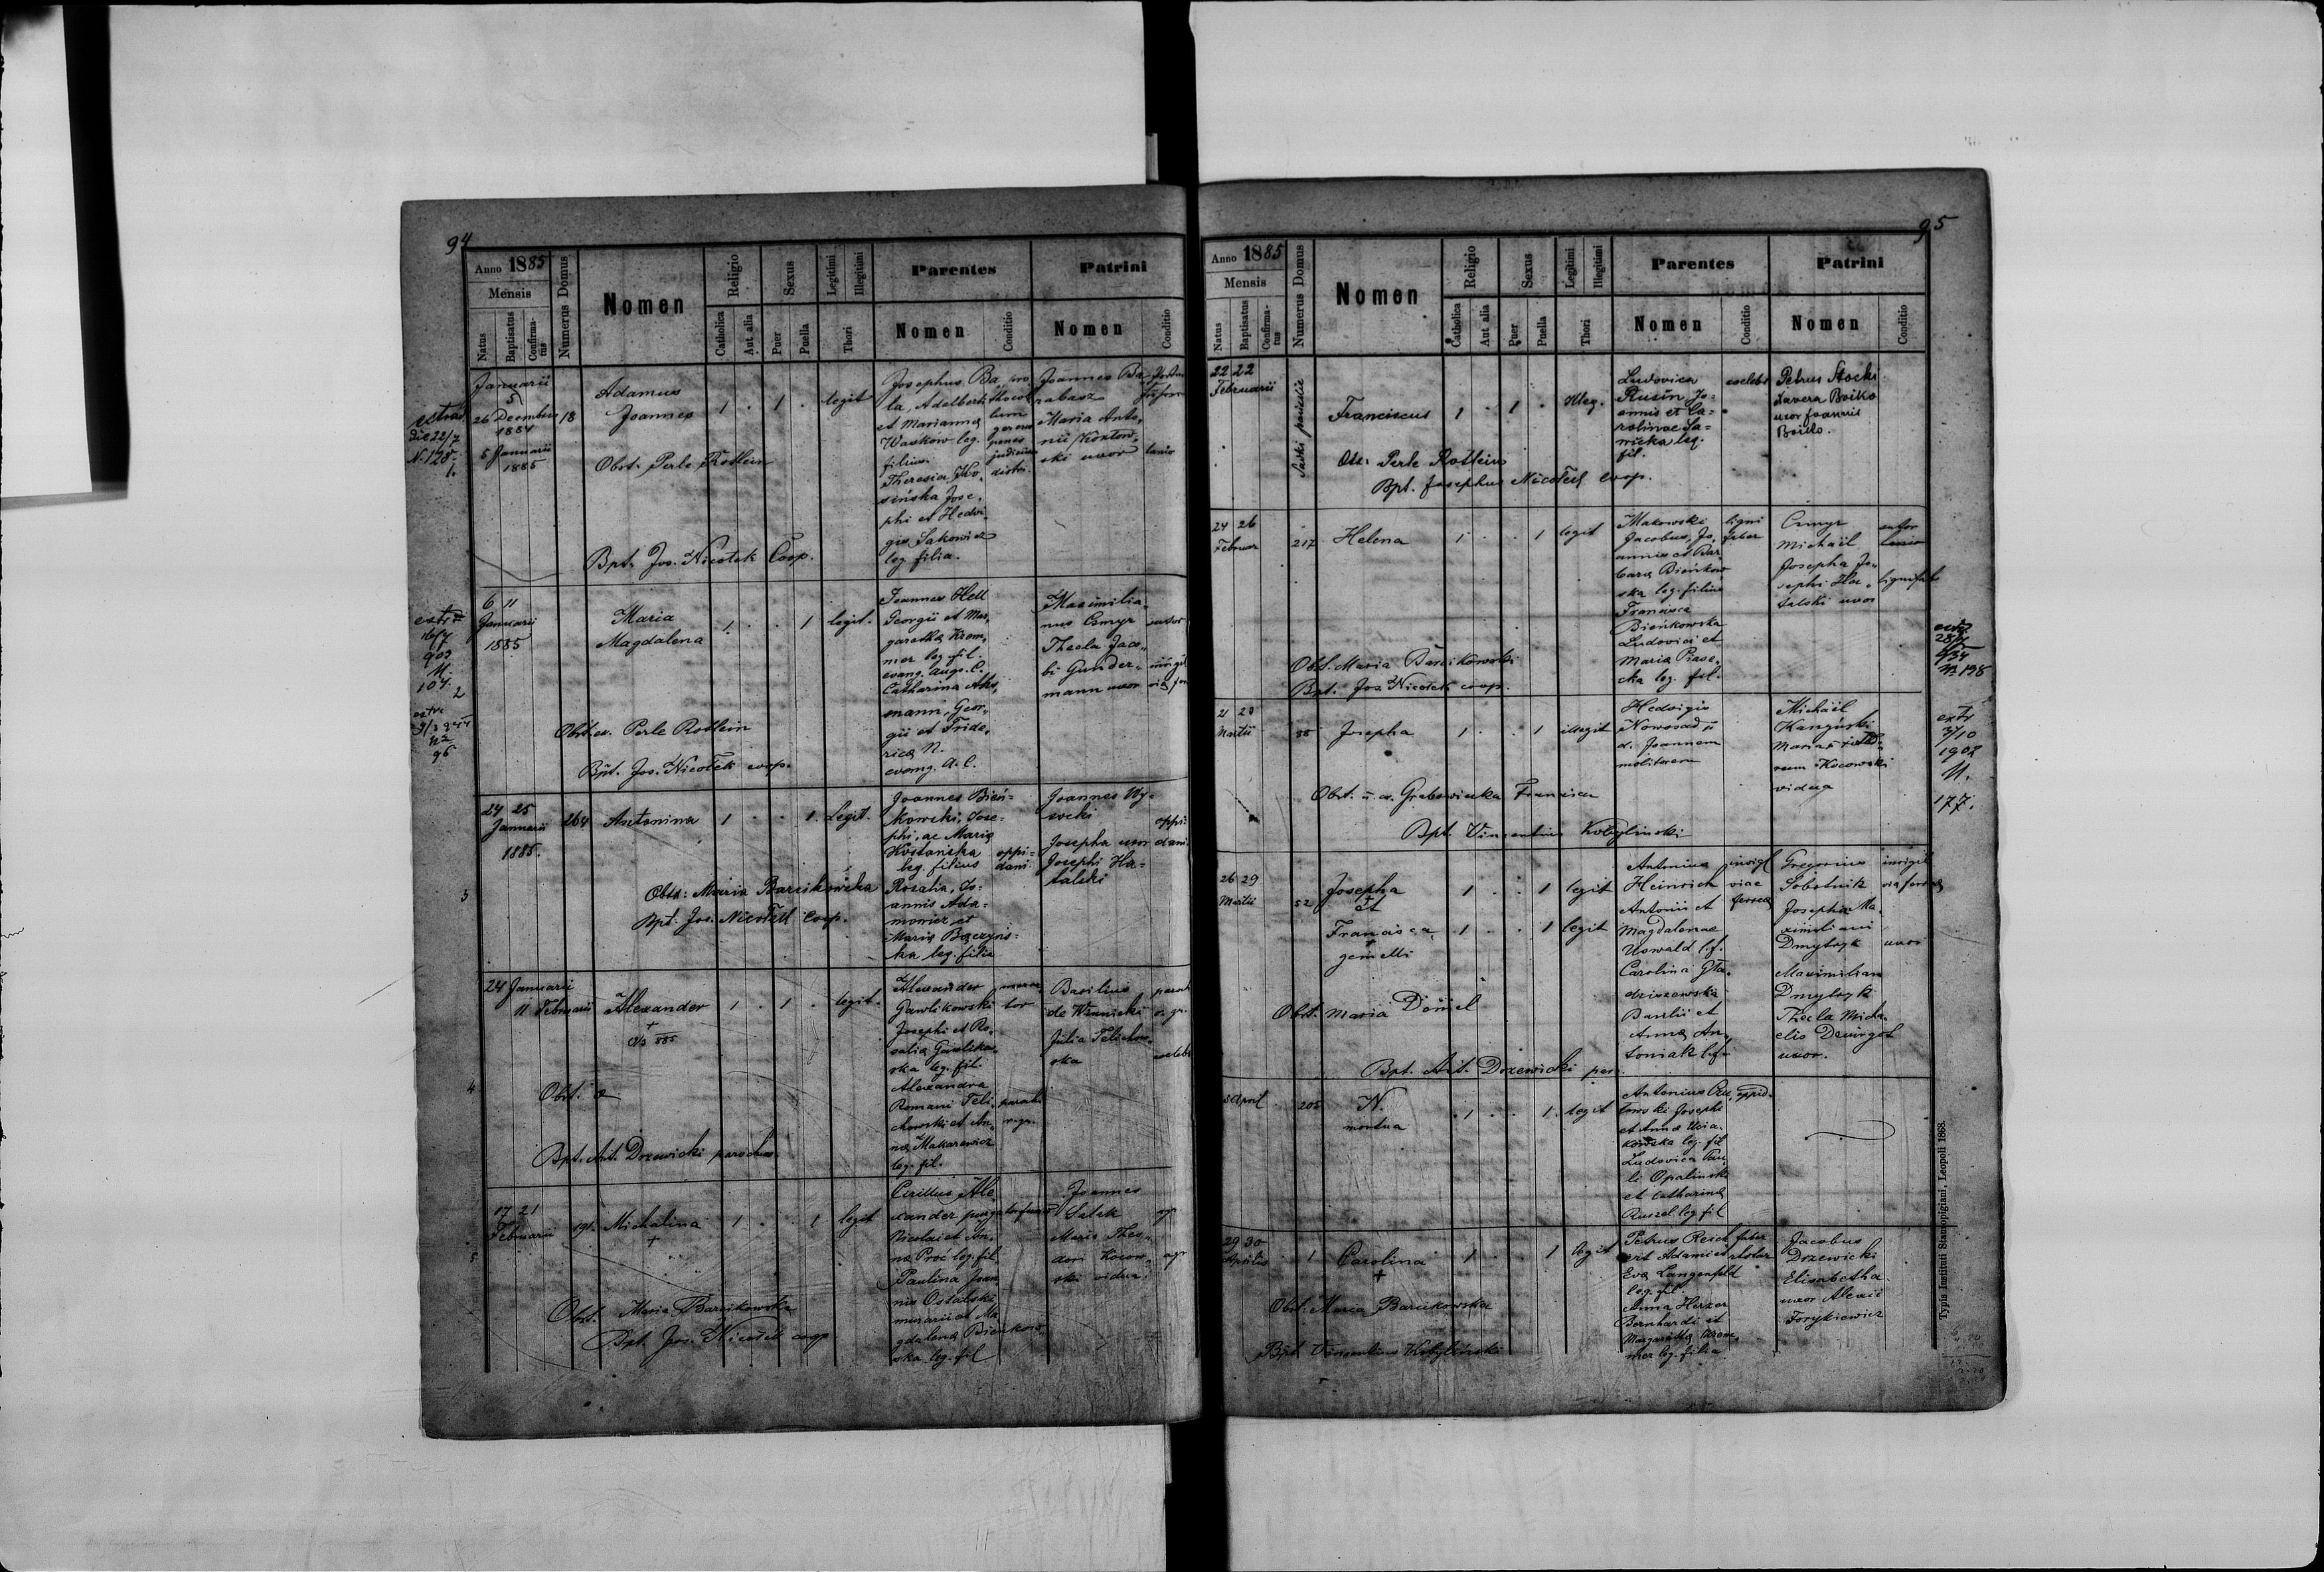 94
Anno 1885
Mensis
Natus
Baptisatus
Confirmatus
Numerus Domus
Nomen
Religio
Catholica
Aut alia
Sexus
Puer
Puella
Legitimi
Illegitimi
Thori
Parentes
Nomen
Conditio
Patrini
Nomen
Conditio
Januarii
5
26 Decembris
1884
5 Januarii
1885
18
Adamus
Joannes
1 . 1 .
legit
Obst. Perle Rotlein
Bpt. Jos. Nicotek Coop.
Josephus Ba,
la, Adalberti
et Marianna
Waskow leg.
filius.
Theresia Ko,
sińska Jose,
phi et Hedvi,
gis Sakowicz
leg. filia.
Joannes Ba,
rabasz
Maria Anto,
nii
ski uxor
6 11
Januarii
1885
Maria
Magdalena
1 . . 1
legit.
Obst. ex. Perle Rotlein
Bpt. Jos. Nicotek coop.
Joannes Hell
Georgii et Mar,
garetha Krom,
mer leg. fil.
evang. Aug. C.
Catharina
mann, Geor,
gii et Fride,
rica N.
evang. A. C.
Maximilia,
nus Czmyr
Thecla Jaco,
bi Gunder,
mann uxor
24 25
Januarii
1885.
264
Antonina
1 . . 1.
Legit.
Obst: Maria Barcikowska
Bpt: Jos. Nicotek Coop.
Joannes Bień=
kowski, Jose=
phi, ac Maria
Kostańska
leg. filius
oppi=
dani
Rosalia, Jo=
annis Ada=
mowicz et
Maria Bączyńs=
ka leg. filia
Joannes Wy=
socki
Josepha uxor
Josephi Ha=
talski
oppi
dani
3
24 Januarii
11 Februarii
Alexander
+
1 . 1 .
legit.
Obst. a
Bpt. Ant. Drzewicki parochus
Alexander
Gawlikowski
Josephi et Ro,
salia Gawliko,
ska leg. fil.
Alexandra
Romani Teli,
chowski et An,
na Makarewicz
leg. fil.
Basilius
de Winnicki
Julia Telichow,
ska
4
17 21
Februarii
191.
Michalina
+
1 . . 1
legit
Obst. Maria Barcikowska
Bpt. Jos. Nicotek coop
Cirillus Ale,
xander
Nicolai et An,
na Proć leg. fil.
Paulina Joan,
nis Ostalski
murarii et Ma
gdalena Bieńkow,
ska leg. fil
Joannes
Salak
Maria Theo,
dori Kocow,
ski vidua.
5
95
Anno 1885
Mensis
Natus
Baptisatus
Confirmatus
Numerus Domus
Nomen
Religio
Catholica
Aut alia
Sexus
Puer
Puella
Legitimi
Illegitimi
Thori
Parentes
Nomen
Conditio
Patrini
Nomen
Conditio
22 22
Februarii
Franciscus
1 . 1 .
Illeg.
Obs: Perle Rotlein
Bpt. Josephus Nicotek coop.
Ludovica
Rusin Jo=
annis et Ca=
rolinae Sa=
wicka leg.
fil.
Petrus Stocki
Xavera Boiko
uxor Joannis
Boiko.
24 26
Februar
217
Helena
1 . . 1
legit
Obst. Maria Barcikowski
Bpt. Jos. Nicotek coop.
Makowski
Jacobus, Jo,
annis et Bar
bara Bieńkow
ska leg. filius
Francisca
Bieńkowska
Ludovici et
Maria Piase,
cka leg. fil.
ligni
faber
Czmyr
Michail
Josepha Jo,
sephi Ha,
talski uxor
21 23
Martii
88
Josepha
1 . . 1
illegit
Obst. u. a. Grabowiecka Francisca
Bpt. Vincentius Kobylinski
Hedvigis
Nowosad
d. Joannem
molitorem
Michail
Maria
Kocowski
vidua
extr
3/10
1902
177.
26 29
Martii
52
Josepha
+
et
Francisca
+
gemelli
1 . . 1 legit
1 . . 1 legit
Obst. Maria Dömel
Bpt. Ant. Drzewicki par.
Antonius
Heinrich
Antonii et
Magdalenae
Uswald l.f.
Carolina Gła,
dziszewska
Basilii et
Anna An,
toniak l.f.
Gregorius
Sobotnik
Josepha Ma,
ximiliani
Dmytryk uxor
Maximilian
Dmytryk
Thecla Micha,
elis
uxor.
3 April
205
N.
mortua
1 . . 1.
legit
Antonius
towski Josephi
et Anna
leg. fil
Ludovica Pau,
li Opalinski
et Catharina
Ruszel leg fil
29 30
Aprilis
1
Carolina
+
1 . . 1
legit
Obst. Maria Barcikowska
Bpt Vincentius Kobylinski
Petrus Reich
Adami et
Eva Langenfeld
leg. fil.
Anna Herzer
Bernhardi et
Margaretha Krom,
mer leg. filia
Jacobus
Drzewicki
Elisabetha
uxor Alexii
Forykiewicz
Typis Instituti Stauropigiani, Leopoli 1868.